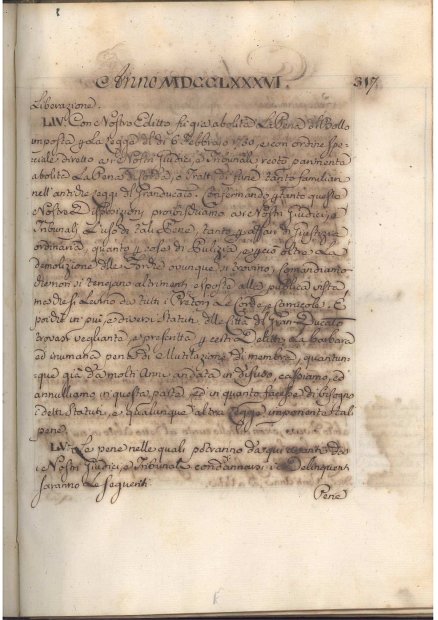 Anno MDCCLXXXVI. 317.
Liberazione.
LIV: Con Nostro Editto fù già abolita La Pena del Bollo
imposta p La Legge de' dì 6 Febbraio 1750, e con ordine spe-
ciale diretto a i Nostri Giudici, e Tribunali restò parimente
abolita La Pena di Corda, e Tratti di fune tanto familiare
nell'antiche Leggi di Granducato. Confermando p tanto queste
Nostre Disposizioni, proibischiamo a i Nostri Giudici, e
Tribunali L'uso di tali Pene, tanto p affari di Giustizia
ordinaria, quanto p casi di Pulizia, e p ciò oltre a La
demolizione delle Forche ovunque si trovano, comandiamo
che non si tengano altrimenti esposte alla publica vista,
ne che si Levino da tutti i Pretori Le Corde, e Carrucole. E
poichè in più, e diversi Statuti delle Città del Gran-Ducato
trovasi vegliante, e prescritta p certi Delitti La barbara
ed inumana pena di Mutilazione di membra, quantun-
que già da molti Anni andata in disuso, cassiamo, ed
annulliamo in questa parte, ed in quanto facesse di bisogno
i detti Statuti, e qualunque altra Legge imponente tali
pene.
LV: Le pene nelle quali potranno da qui avanti da
i Nostri Giudici, e Tribunali condannarsi i Delinquenti
saranno Le seguenti.
Pene